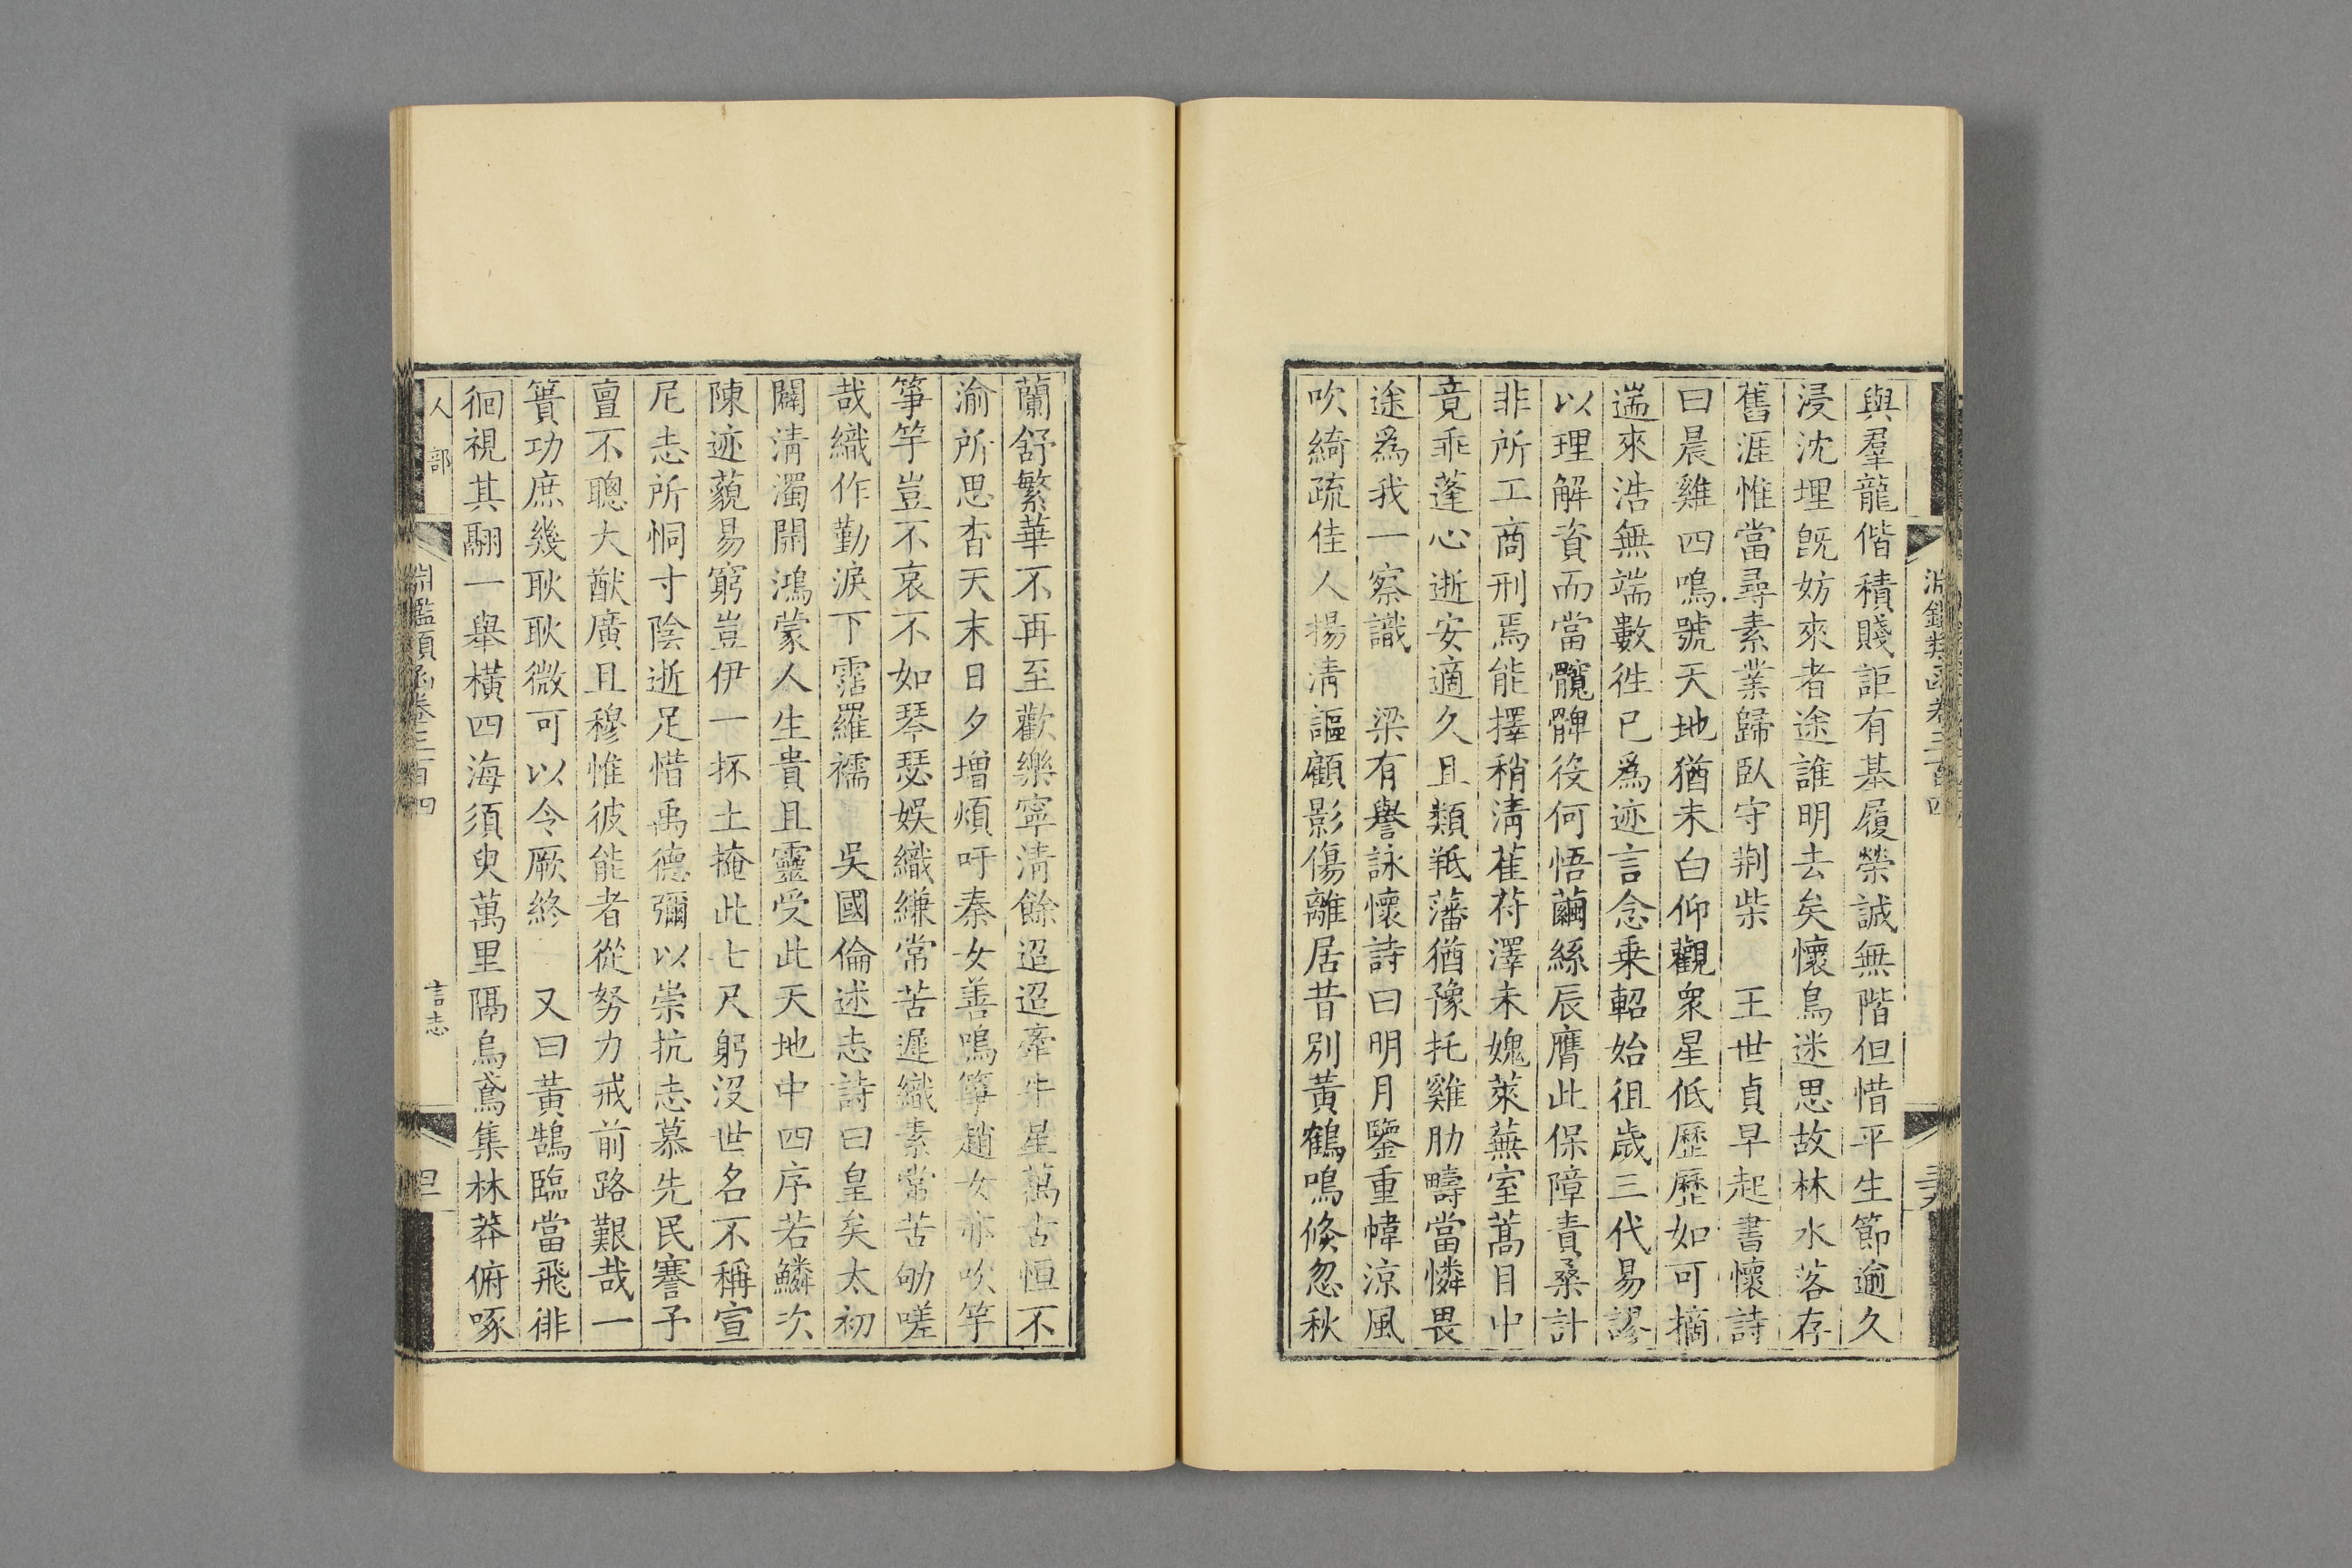 淵鑑類函卷三百四
與羣龍偕積賤詎有基履榮誠無階但惜平生節逾久
浸沈埋旣妨來者途誰明去矣懷鳥迷思故林水落存
舊涯惟當尋素業歸臥守荆柴 王世貞早起書懷詩
曰晨雞四鳴號天地猶未白仰觀衆星低歷歷如可摘
遄來浩無端數徃已爲迹言念乗軺始徂歲三代易謬
以理解資而當髖髀役何悟繭絲辰膺此保障責桑計
非所工商刑焉能擇稍淸萑苻澤未媿萊蕪室蒿目中
竟乖蓬心逝安適久且類羝藩猶豫托雞肋疇當憐畏
途爲我一察識 梁有譽詠懷詩曰明月鑒重幃涼風
吹綺疏佳人揚淸謳顧影傷離居昔別黃鶴鳴倐忽秋
蘭舒繁華不再至歡樂寧淸餘迢迢牽牛星萬古恒不
渝所思杳天末日夕增煩吁秦女善鳴箏趙女亦吹竽
箏竽豈不哀不如琴瑟娛織縑常苦遲織素常苦劬嗟
哉織作勤淚下霑羅襦 吳國倫述志詩曰皇矣太初
闢淸濁開鴻蒙人生貴且靈受此天地中四序若鱗次
陳迹藐易窮豈伊一抔土掩此七尺躬沒世名不稱宣
尼志所恫寸陰逝足惜禹德彌以崇抗志慕先民謇予
亶不聰大猷廣且穆惟彼能者從努力戒前路艱哉一
簣功庶幾耿耿微可以令厥終 又曰黃鵠臨當飛徘
徊視其翮一舉橫四海須臾萬里隔烏鳶集林莽俯啄
人部 淵鑑類函卷三百四 言志